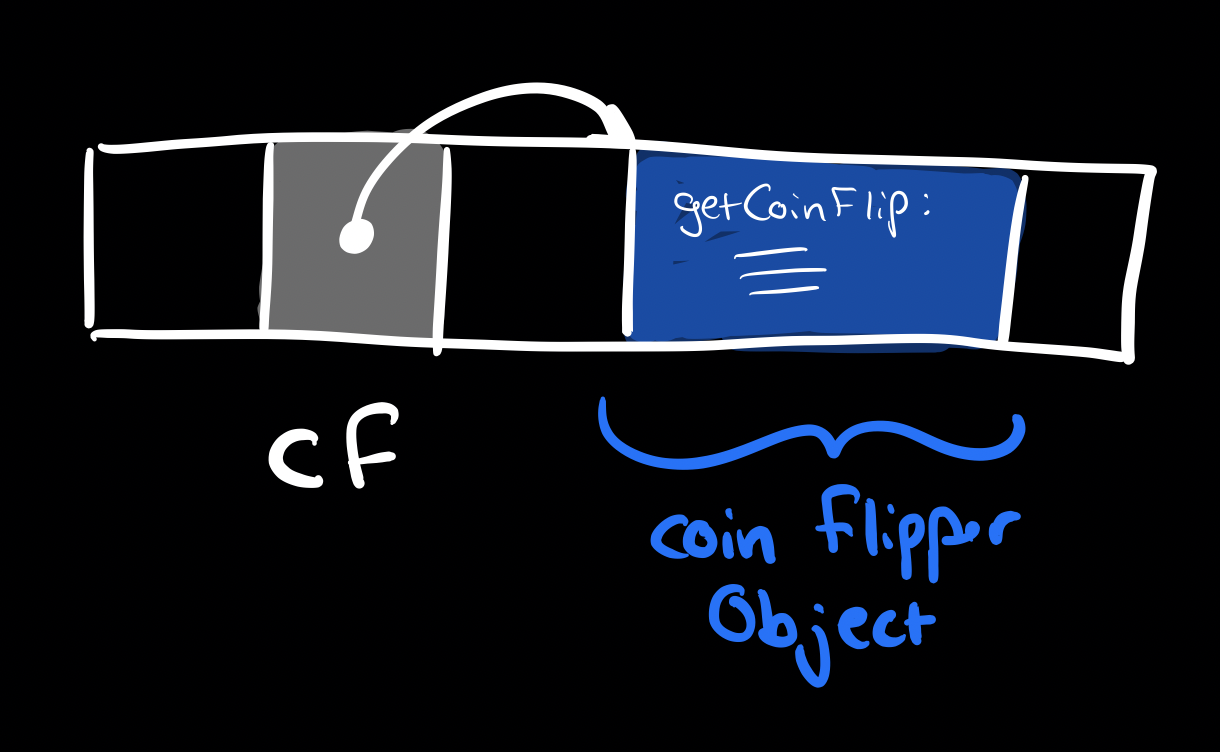 getCoinFlip:
cF
coin Flipper
Object